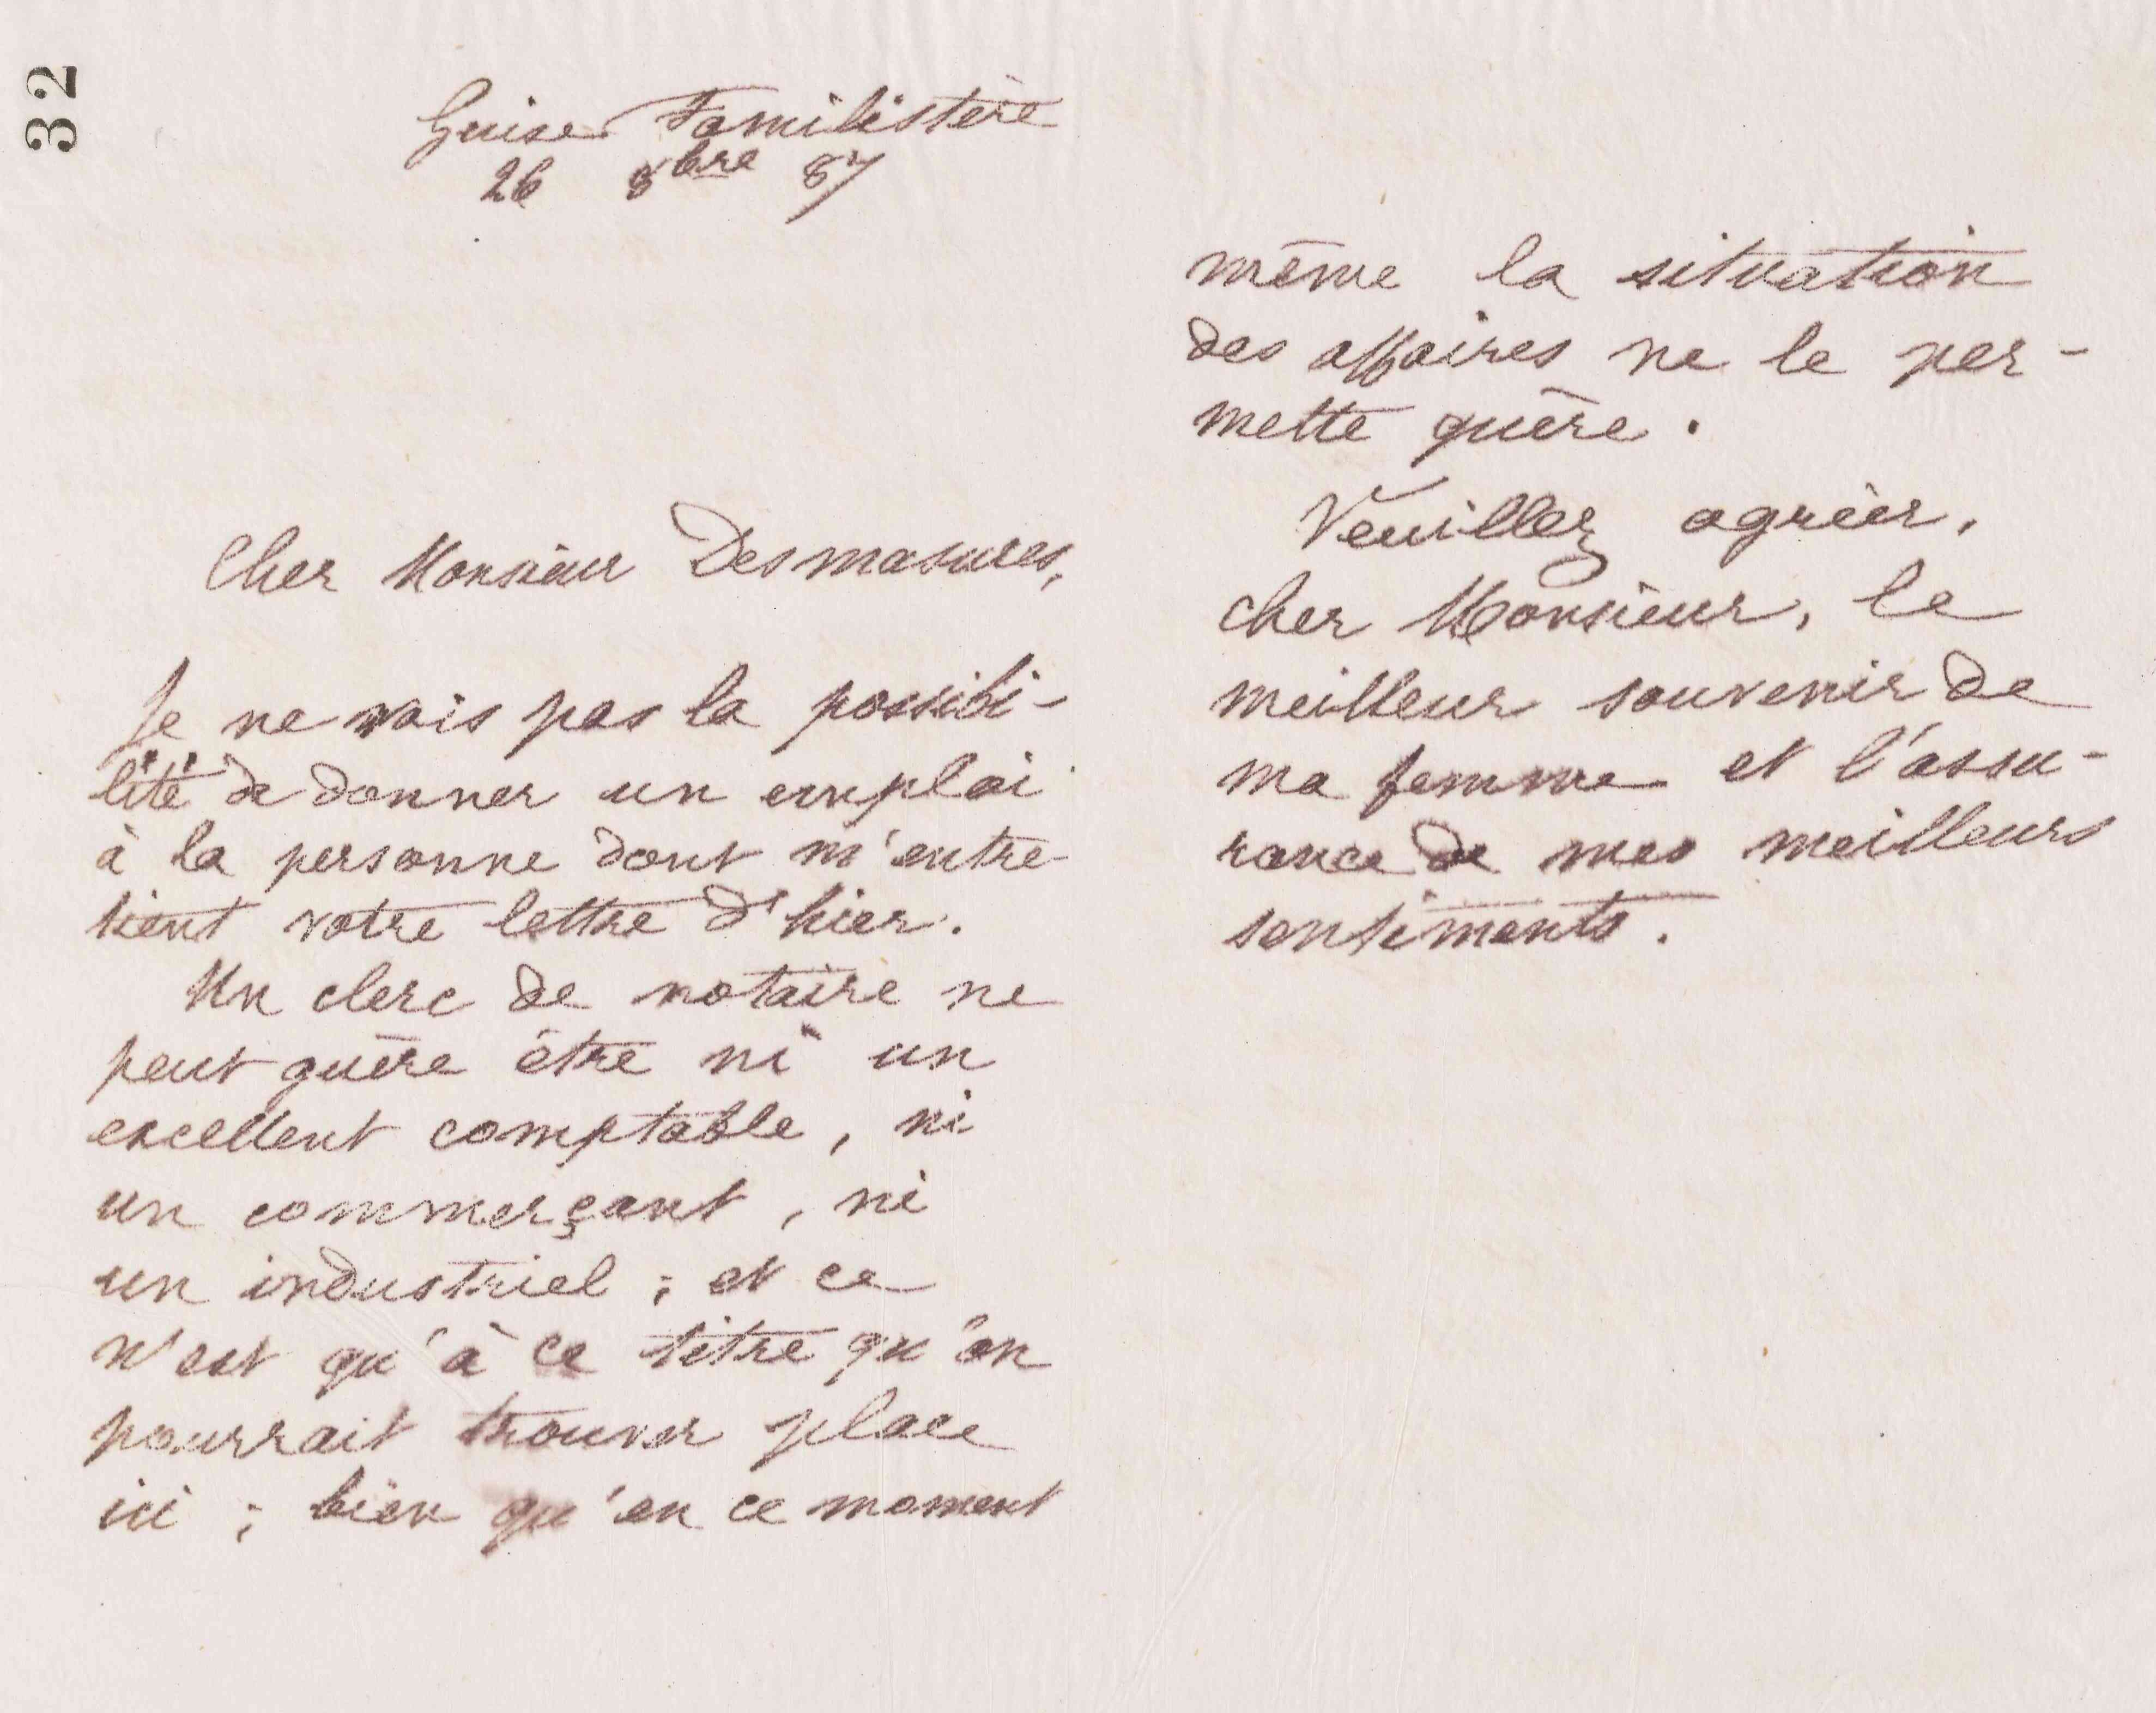 32
Guise Familistère
26 8bre 87
Cher Monsieur Desmasures,
Je ne vois pas la possibi-
lité de donner un emploi
à la personne dont m'entre-
tient votre lettre d'hier.
Un clerc de notaire ne
peut guère être ni un
excellent comptable, ni
un commerçant, ni
un industriel ; et ce
n'est qu'à ce titre qu'on
pourrait trouver place
ici ; bien qu'en ce moment
même la situation
des affaires ne le per-
mette guère.
Veuillez agréer,
cher Monsieur, le
meilleur souvenir de
ma femme et l'assu-
rance de mes meilleurs
sentiments.